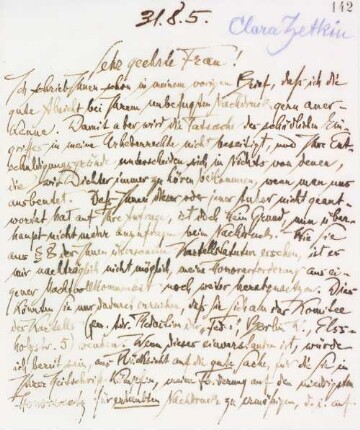 142
31.8.5.
Clara Zetkin
Sehr geehrte Frau!
Ich schrieb Ihnen schon in meinem vorigen Brief, daß ich die
gute Absicht bei Ihrem unbefugten Nachdruck gern aner-
kenne. Damit aber wird die Tatsache des schädlichen Ein-
griffes in meine Urheberrechte nicht beseitigt, und Ihre Ent-
schuldigungsgründe unterscheiden sich in Nichts von denen,
die wir Dichter immer zu hören bekommen, wenn man uns
ausbeutet. Daß Ihnen dieser oder jener Autor nicht geant-
wortet hat auf Ihre Anfrage, ist doch kein Grund, nun über-
haupt nicht mehr anzufragen beim Nachdruck. Wie Sie
aus § 8 der Ihnen übersandten Kartellstatuten ersehen, ist es
mir nachträglich nicht möglich, meine Honorarforderung aus ei-
gener Machtvollkommenheit noch weiter herabzusetzen. Dies
könnten Sie nur dadurch erreichen, daß Sie sich an das Komitee
des Kartells (gen. Adr. Redaktion die Berlin
5) wenden. Wenn dieses einverstanden ist, würde
ich bereit sein, aus Rücksicht auf die gute Sache, für die Sie in
Ihrer Zeitschrift kämpfen, meine Forderung auf den niedrigsten
für erlaubten Nachdruck zu ermäßigen, d. i. auf